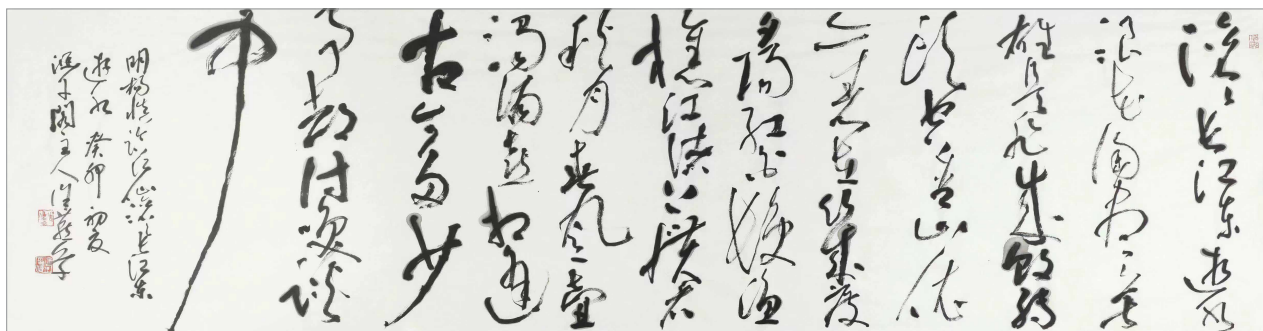 滚滚长江东逝水
浪花淘尽英
雄是非成敗轉
头空青山依
在幾度
陽红白髮渔
樵江渚上慣看
秋月春风一壶
浊酒喜相逢
古今多少
事都付笑谈
中
明楊慎词临江仙滚滚长江東
逝水 癸卯初夏
阁主人